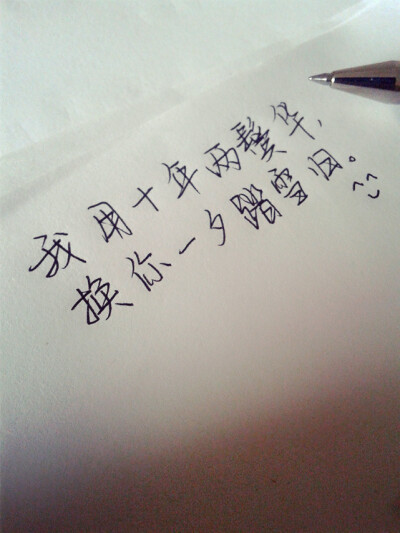 我用十年两鬓华，
换你一夕踏雪归。^_^